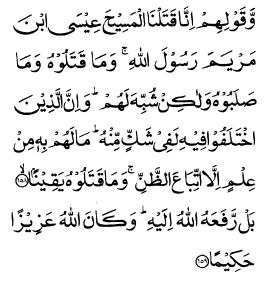 وَّقَوْلِهِمْ اِنَّا قَتَلْنَا الْمَسِيْحَ عِيْسَى ابْنَ
مَرْيَمَ رَسُوْلَ اللهِ ۚ وَمَا قَتَلُوْهُ وَمَا
صَلَبُوْهُ وَلٰكِنْ شُبِّهَ لَهُمْ ؕ وَاِنَّ الَّذِيْنَ
اخْتَلَفُوْا فِيْهِ لَفِيْ شَكٍّ مِّنْهُ ؕ مَا لَهُمْ بِهٖ مِنْ
عِلْمٍ اِلَّا اتِّبَاعَ الظَّنِّ ۚ وَمَا قَتَلُوْهُ يَقِيْنًاۢ ۙ﴿۱۵۸﴾
بَلْ رَّفَعَهُ اللهُ اِلَيْهِ ؕ وَكَانَ اللهُ عَزِيْزًا
حَكِيْمًا ﴿۱۵۹﴾